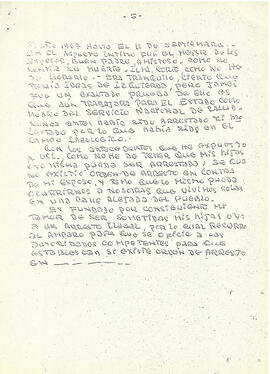 - 2 -
EL AÑO 1967 HASTA EL 11 DE SEPTIEMBRE.
EN EL ASPECTO INTIMO FUE EL MEJOR DE LOS
ESPOSOS, BUEN PADRE, AMISTOSO, COMO NO
SENTIR SU MUERTE
SU LLORARLO - ERA TRANQUILO, CIERTO QUE
TENIA IDEAS DE IZQUIERDA, PERO JAMAS
FUE UN EXALTADO PRUEBA DE ELLO ES
QUE AUN TRABAJABA PARA EL ESTADO COMO
MEDICO DEL SERVICIO NACIONAL DE SALUD.
NUNCA ANTES HABIA SIDO ARRESTADO NI MO
LESTADO POR LO QUE HABIA SIDO EN EL
CAMPO IDEOLOGICO.
CON LOS ANTECEDENTES QUE HE EXPUESTO
A USI., COMO NO HE DE TENER QUE MIS HIJAS
O YO MISMA PUEDA SER ARRESTADA, SE QUE
NO EXISTIO ORDEN DE ARRESTO EN CONTRA
DE MI ESPOSO, Y TEMO QUE LO MISMO PUEDA
OCURRIRNOS A NOSOTRAS QUE VIVIMOS SOLAS
EN UNA CALLE ALEJADA DEL PUEBLO.
ES FUNDADO POR CONSIGUIENTE MI
TEMOR DE SER SOMETIDAS MIS HIJAS O YO
A UN ARRESTO ILEGAL, POR LO CUAL RECURRO
AL AMPARO PARA QUE SE OFICIE A LAS
AUTORIDADES COMPETENTES PARA QUE
ESTABLEZCAN SI EXISTE ORDEN DE ARRESTO
EN